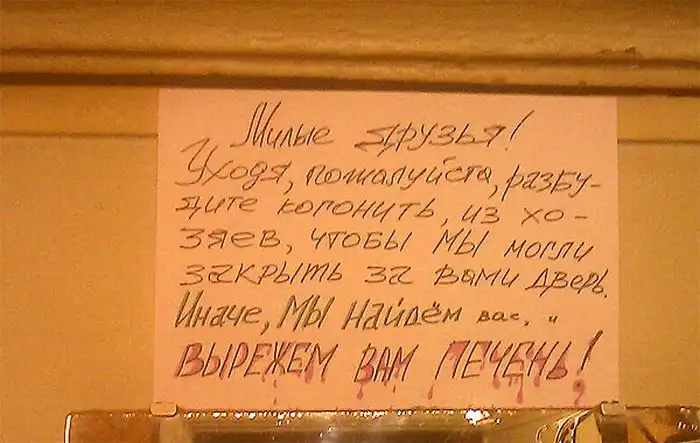 Милые друзья!
Уходя, пожалуйста, разбу-
дите когонить, из хо-
зяев, чтобы мы могли
закрыть за вами дверь.
Иначе, мы найдём вас, и
ВЫРЕЖЕМ ВАМ ПЕЧЕНЬ!